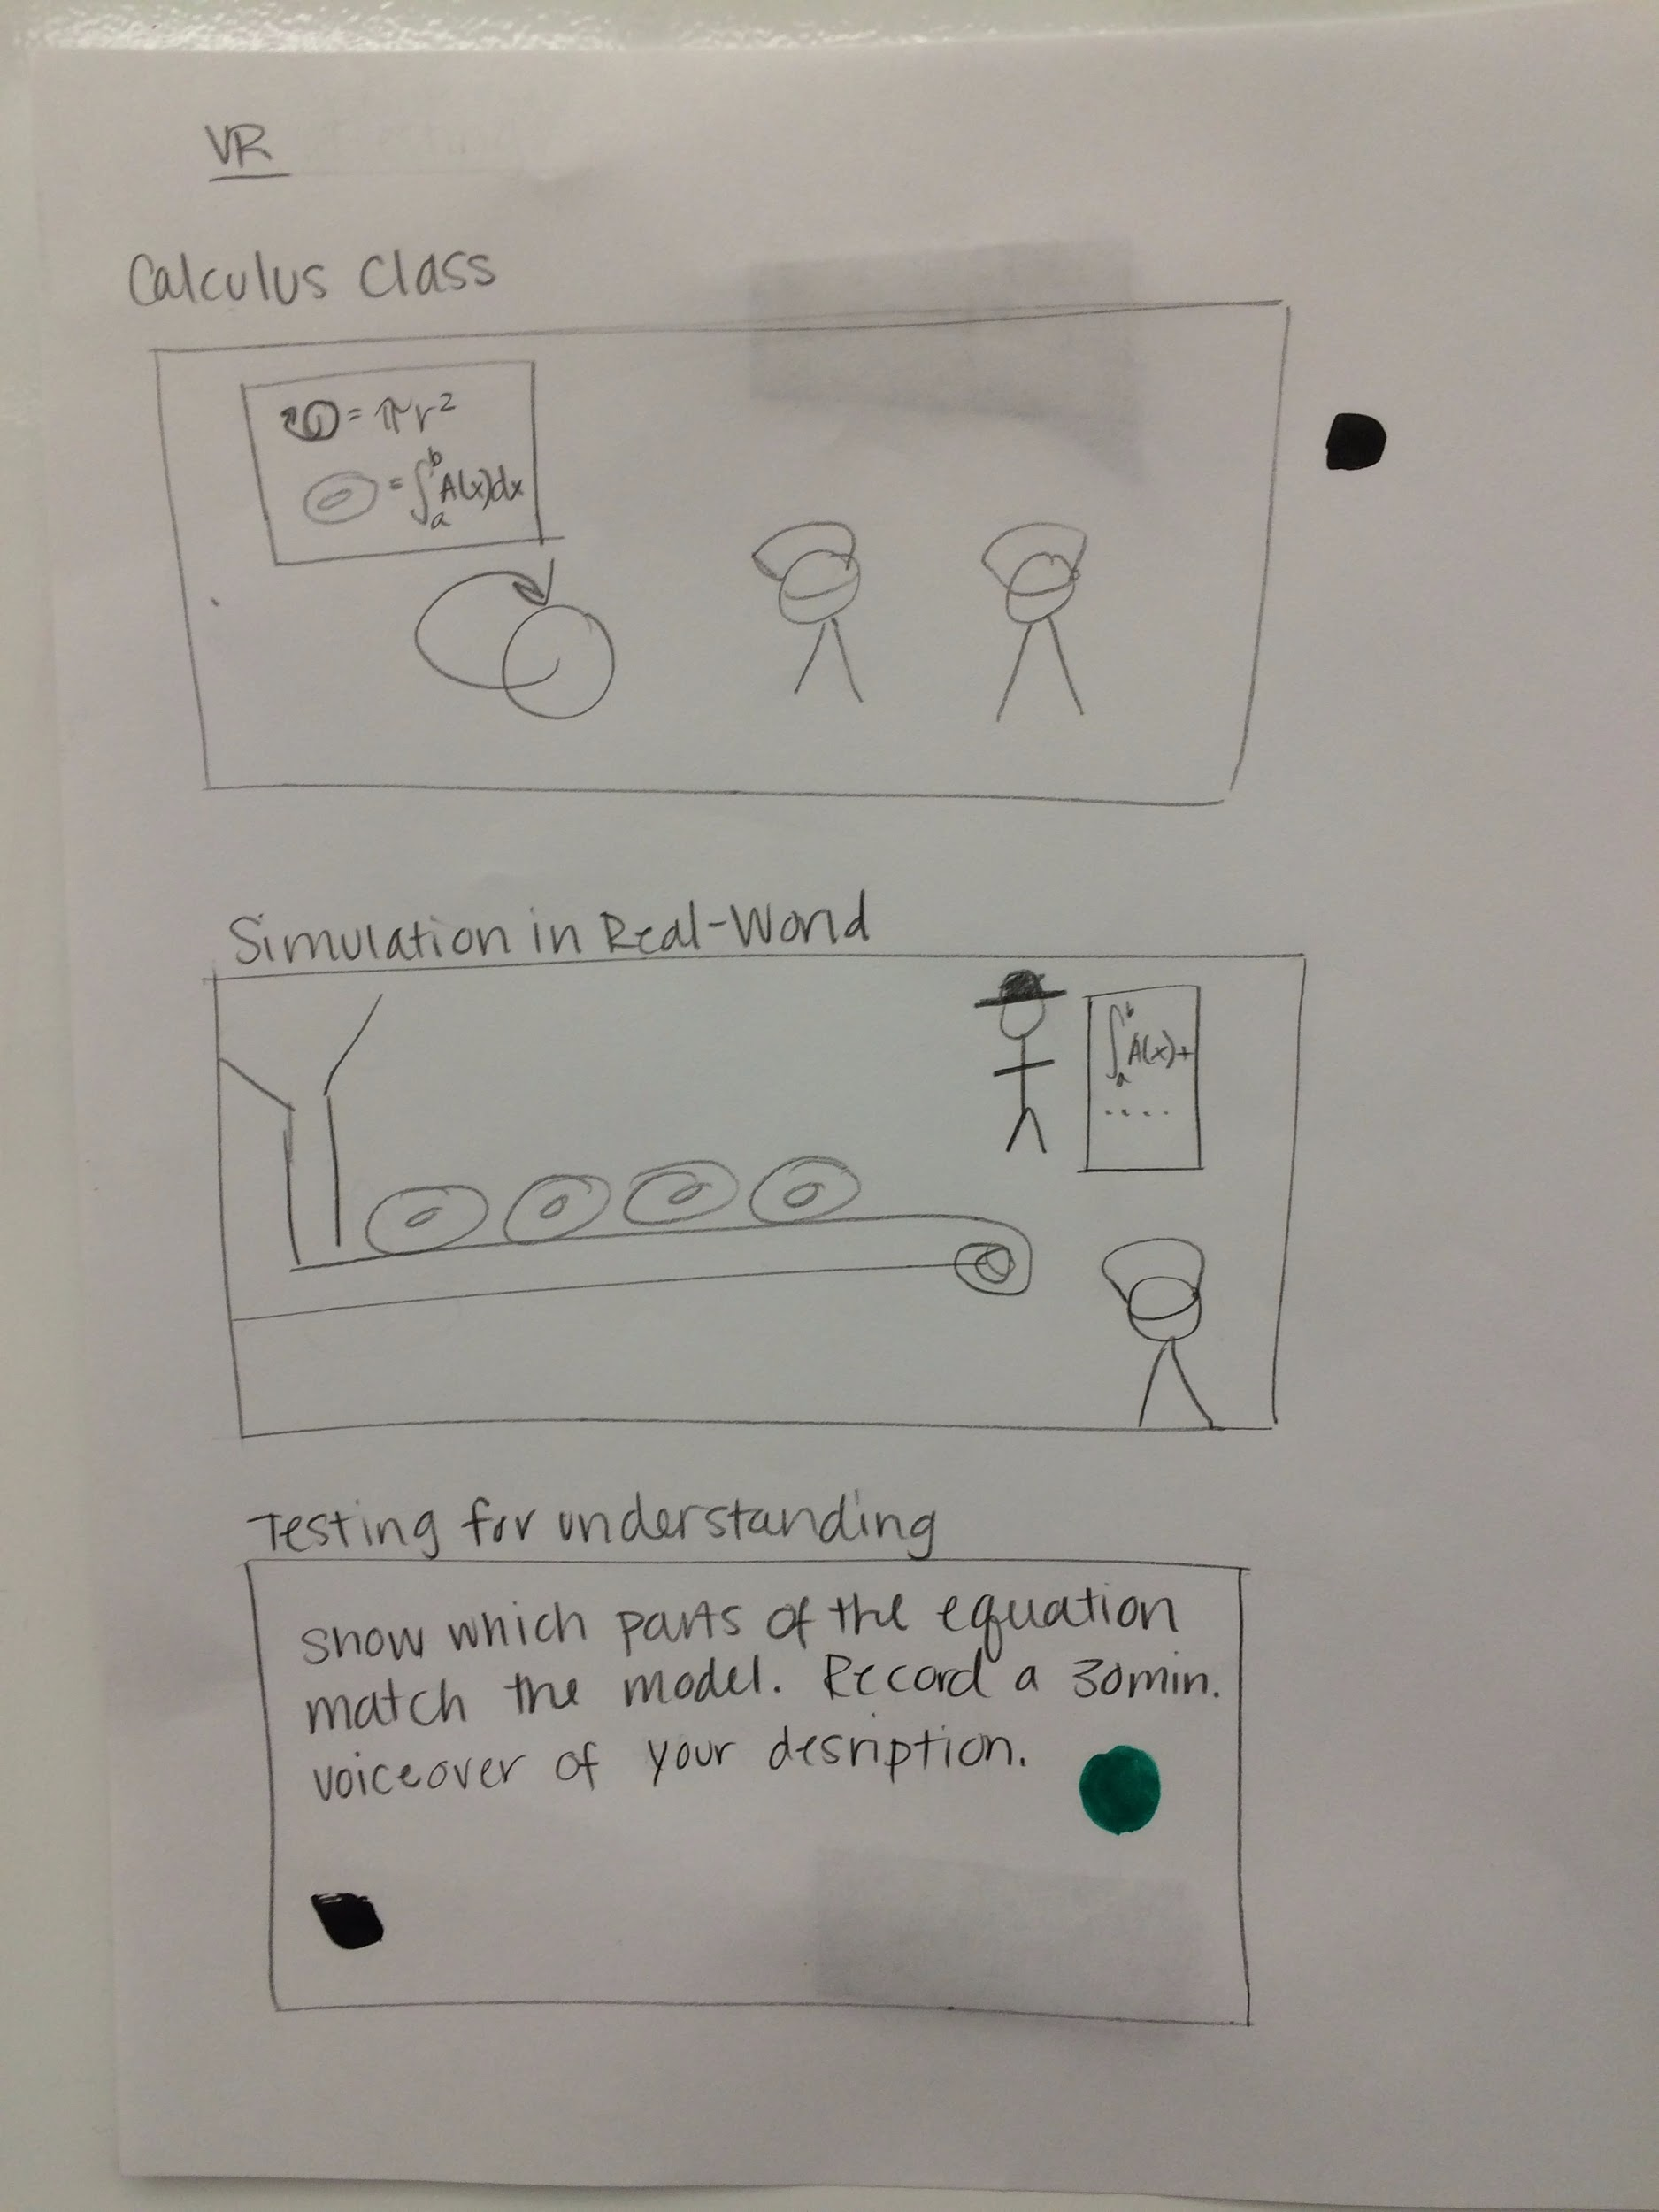 VR
Calculus Class
= πr²
= ∫ₐᵇ A(x)dx
Simulation in Real-World
∫ₐᵇ A(x)+
....
Testing for understanding
Show which parts of the equation
match the model. Record a 30min.
voiceover of your desription.